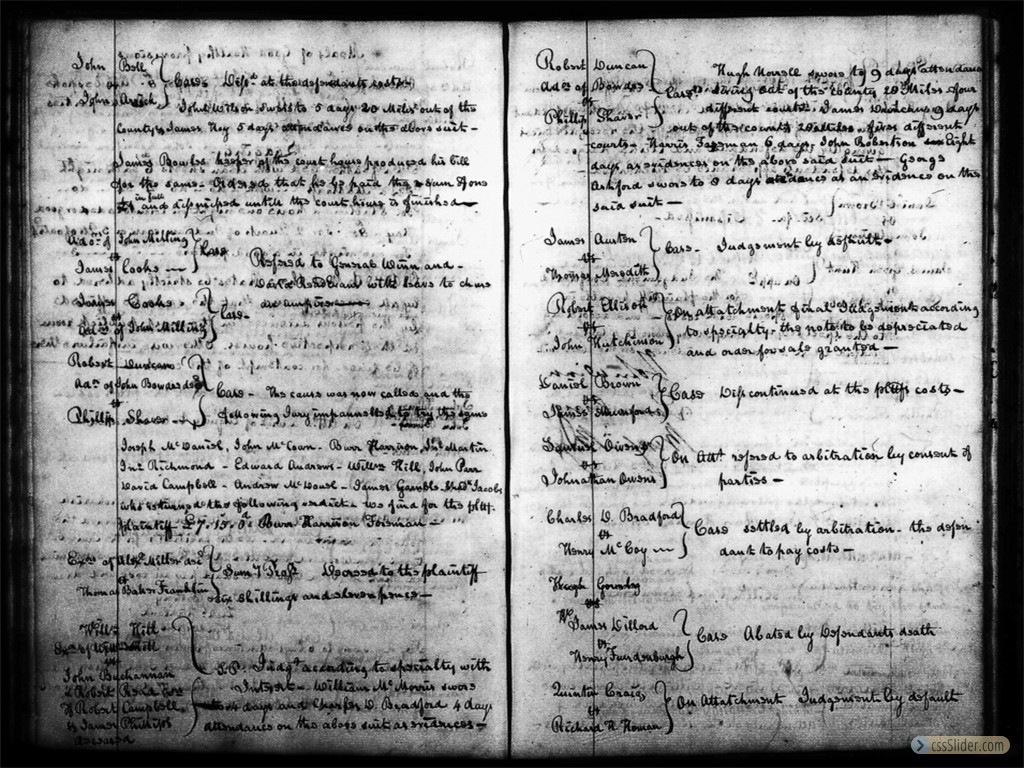 John Bell
vs
John Arrick
Case Disct. at the defendants costs
John Wilson swears to 5 days 20 Miles out of the
County & James Hoy 5 days attendance on the above suit —
James Bowles keeper of the court house produced his bill
for the same — Ordered that he be paid the sum of one
in full
and dismissed untill the court house is finished —
Ador. of John Milling
vs
James Cooke —
Case Refered to General Winn and
David Read Evans with leave to chuse
an umpire
James Cooke
vs
Ador. of John Milling
Case —
Robert Duncan
Adr. of John Bowdes decd
vs
Phillip Shaver —
Case — The cause was now called and the
following Jury impannelled to try the same
Joseph McDaniel, John McCown — Burr Harrison Jno. Martin
Jno. Richmond — Edward Andrews — Willm. Hill, John Parr
David Campbell — Andrew McDowel — James Gamble — Jacobs
who returned the following verdict — we find for the pltff.
plaintiff £7.15.0 Burr Harrison Foreman —
Exrs. of Alexr. Miller decd
vs
Thomas Baker Franklin
Sumy Process Decreed to the plaintiff
six shillings and eleven pence —
Willm. Hill
Exr. of Hill
vs
John Buchannan
& Robert
& Robert Campbell
& James Phillips
deceased
S.P. Judgt. according to specialty with
Interest — William McMorris swore
to 4 days and Charles D. Bradford 4 days
attendance on the above suit as evidences —
Robert Duncan
Adr. of Bowdes
vs
Phillip Shaver
Case Hugh Norrell swore to 9 days attendance
living out of the County 20 Miles four
different courts. James 9 days
out of the county 20 Miles five different
courts — Harris Freeman 6 days, John Robertson Eight
days, as evidences on the above said suit — George
Ashford swore to 8 days attendance as an evidence on the
said suit —
James Austen
vs
Thomas Meredith
Case — Judgement by default —
Robert Ellison
vs
John Hutchinson
On Attatchment final Judgement according
to specialty — the note to be depreciated
and order for sale granted —
Daniel Brown
vs
James
Case Discontinued at the pltiffs costs —
Samuel Owens
vs
Johnathan Owens
On Att. refered to arbitration by consent of
parties —
Charles D. Bradford
vs
Henry McCoy —
Case settled by arbitration — the defen
dant to pay costs —
Hugh Gourley
vs
Wm.
James Dillord
vs
Henry Fundenburgh
Case Abated by Defendants death
Quinton Craig
vs
Richard H. Homan
On Attatchment Judgement by default
cssSlider.com